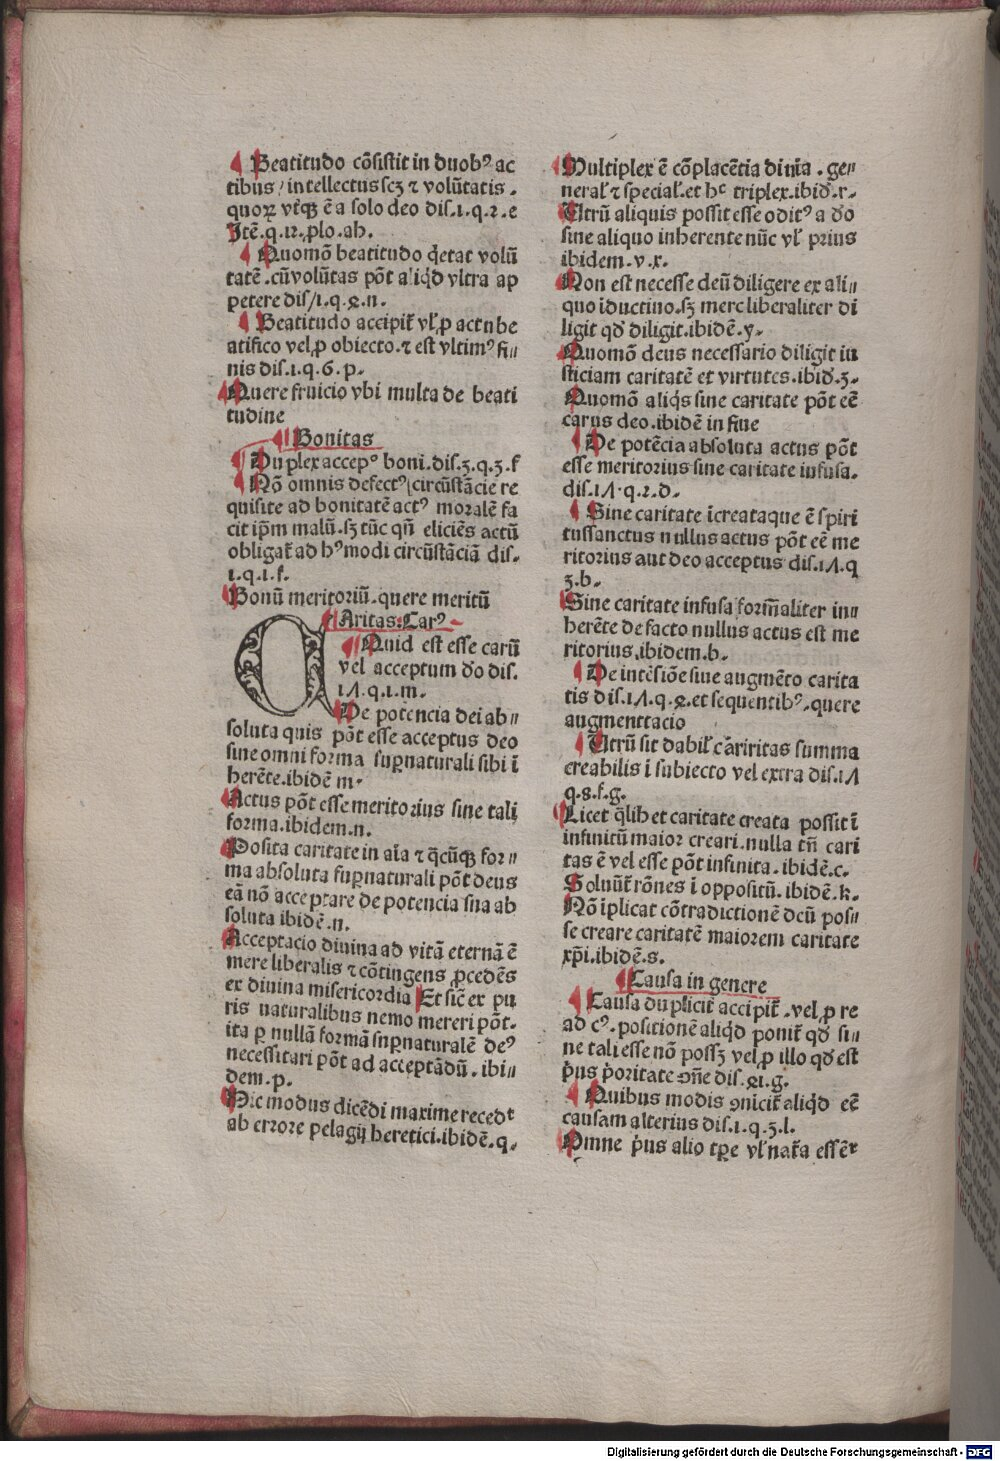 Beatitudo cõsistit in duobꝰ ac
tibus / intellectus scʒ ⁊ volũtatis .
quoꝝ vtꝛ̃qꝫ ẽ a solo deo dis.1.q.2.e
Jtẽ.q.12.plo.ab.
Quomõ beatitudo q̃etat volũ
tatẽ.cũ volũtas põt aliqd̃ vltra ap
petere dis/1.q.8.n.
Beatitudo accipit̃ vl̃ ꝓ actu be
atifico vel ꝓ obiecto.⁊ est vltimꝰ fi⸗
nis dis.1.q.6.p.
Quere fruicio vbi multa de beati
tudine
Bonitas
Duplex accepᵒ boni.dis.3.q.3.f
Nõ omnis defectꝰ circũstãcie re
quisite ad bonitatẽ actꝰ moralẽ fa
cit ip̃m malũ.sʒ tũc qñ eliciẽs actũ
obligat̃ ad hꝰmodi circũstãciã dis.
1.q.1.f.
Bonũ meritoriũ.quere meritũ
Aritas: Carꝰ
Quid est esse carũ
vel acceptum dõ dis.
17.q.1.m.
De potencia dei ab⸗
soluta quis põt esse acceptus deo
sine omni forma supꝛnaturali sibi ĩ
herẽte.ibidẽ m.
Actus põt esse meritorius sine tali
forma.ibidem.n.
Posita caritate in aĩa ⁊ q̃cũqꝫ for⸗
ma absoluta supꝛnaturali põt deus
eã nõ acceptare de potencia sua ab
soluta ibidẽ.n.
Acceptacio diuina ad vitã eternã ẽ
mere liberalis ⁊ cõtingens ꝓcedẽs
ex diuina misericordia Et sic̃ ex pu
ris naturalibus nemo mereri põt.
ita ꝑ nullã formã supꝛnaturalẽ deꝰ
necessitari põt ad acceptãdũ . ibi⸗
dem.p.
Hic modus dicẽdi maxime recedᵗ
ab errore pelagij heretici.ibidẽ.q.
Multiplex ẽ cõplacẽtia diuĩa . ge⸗
neral̃ ⁊ special̃.et hᶜ triplex.ibid̃.r.
Utrũ aliquis possit esse oditꝰ a dõ
sine aliquo inherente nũc vl̃ prius
ibidem.v.x.
Non est necesse deũ diligere ex ali⸗
quo ĩductiuo.sʒ mere liberaliter di
ligit qd̃ diligit.ibidẽ.y.
Quomõ deus necessario diligit iu
sticiam caritatẽ et virtutes.ibid̃.z.
Quomõ aliq̃s sine caritate põt eẽ
carus deo.ibidẽ in fine
De potẽcia absoluta actus põt
esse meritorius sine caritate infusa.
dis.17.q.2.d.
Sine caritate ĩcreata que ẽ spiri
tussanctus nullus actus põt eẽ me
ritorius aut deo acceptus dis.17.q
3.b.
Sine caritate infusa form̃aliter in⸗
herẽte de facto nullus actus est me
ritorius.ibidem.b.
De intẽsiõe siue augmẽto carita
tis dis.17.q.8.et sequentibꝰ.quere
augmenttacio
Utrũ sit dabil̃ cãriritas summa
creabilis ĩ subiecto vel extra dis.17
q.8.f.g.
Licet q̃libet caritate creata possit ĩ
infinitũ maior creari.nulla tñ cari
tas ẽ vel esse põt infinita.ibidẽ.c.
Soluũt̃ rõnes ĩ oppositũ.ibidẽ.k.
Nõ ĩplicat cõtradictionẽ deũ pos⸗
se creare caritatẽ maiorem caritate
xp̃i.ibidẽ.s.
Causa in genere
Causa duplicit̃ accipit̃ .vel ꝓ re
ad cꝰ.positionẽ aliqd̃ ponit̃ qd̃ si⸗
ne tali esse nõ possʒ vel ꝓ illo qd̃ est
p̃us p̃oritate ꝯñe dis.41.g.
Quibus modis ꝯuicit̃ aliqd̃ eẽ
causam alterius dis.1.q.3.l.
Omne p̃us alio tꝑe vl̃ nat̃a essẽᵗ
Digitalisierung gefördert durch die Deutsche Forschungsgemeinschaft - DFG